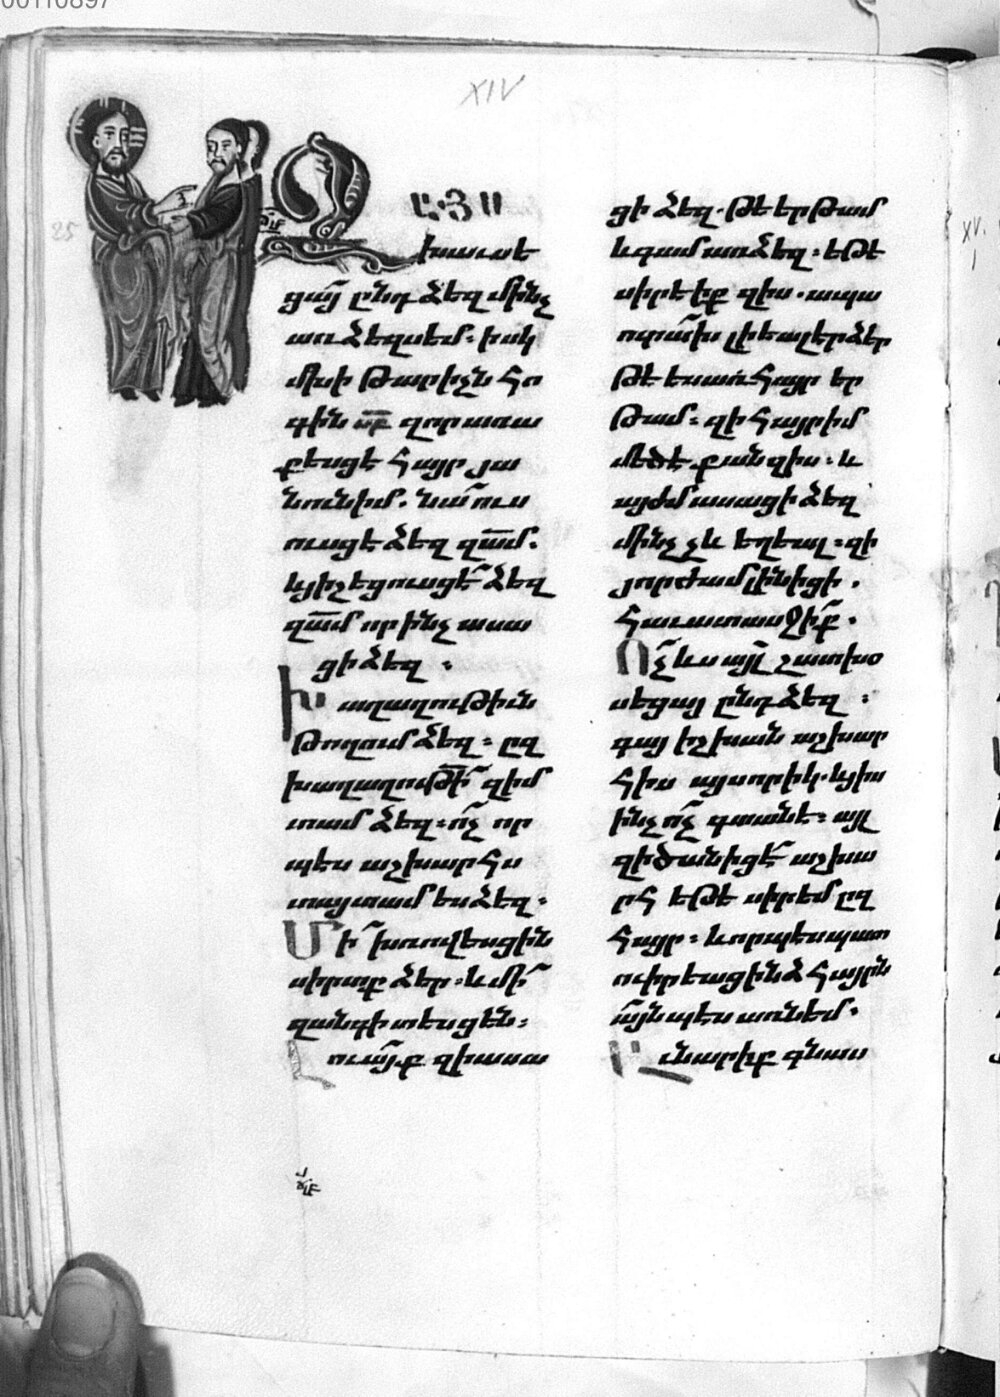 00110897
XIV
25
Զայս
խաւսե
ցայ՜ ընդ ձեզ մինչ
առ ձեզս եմ։ իսկ
մխիթարիչն հո
գին ս՜բ զոր առա
քեսցէ հայր յա
նուն իմ. նա՜ ուս
ուսցէ ձեզ զա՜մ.
և յիշեցուսցէ՜ ձեզ
զա՜մ որ ինչ ասա
ցի ձեզ .
Խաղաղութիւն
թողում ձեզ։ ըզ
խաղաղութի՜ զիմ
տամ ձեզ։ ո՜չ որ
պէս աշխարհս
տայ տամ ես ձեզ.
Մի՜ խռովեսցին
սիրտք ձեր. և մի՜
զանգիտեսցեն։
Լուա՜յք զի ասա
ցի ձեզ. թէ երթամ
և գամ առ ձեզ. եթէ
սիրէիք զիս. ապա
ուրա՜խ լիեալ էր ձեր
թէ ես առ հայր եր
թամ։ զի հայր իմ
մեծ է քան զիս. և
այժմ ասացի ձեզ
մինչ չև եղեալ։ զի
յորժամ լինիցի.
հաւատասջի՜ք.
Ո՜չ ևս այլ շատ խօ
սեցայ ընդ ձեզ։
գայ իշխան աշխար
հիս այսորիկ. և յիս
ինչ ո՜չ գտանէ։ այլ
զի ծանիցէ՜ աշխա
րհ եթէ սիրեմ ըզ
հայր։ և որպէս պատ
ուիրեաց ինձ հայրն
ա՜յնպէս առնեմ.
Արիք գնաս
XV.